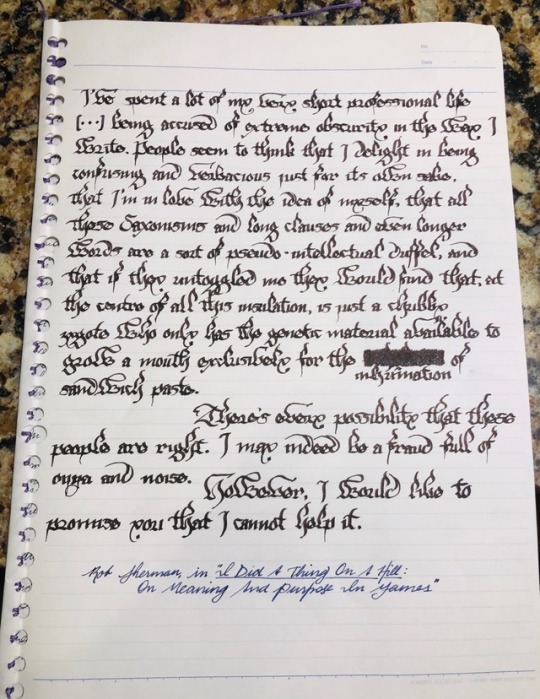 I've spent a lot of my very short professional life
[...] being accused of extreme obscurity in the way I
write. People seem to think that I delight in being
confusing and verbacious just for its own sake,
that I'm in love with the idea of myself, that all
these Saxonisms and long clauses and even longer
words are a sort of pseudo-intellectual duffel, and
that if they untoggled me they would find that, at
the centre of all this insulation, is just a chubby
zygote who only has the genetic material available to
grow a mouth exclusively for the of
sandwich paste.
There's every possibility that these
people are right. I may indeed be a fraud full of
and noise. However, I would like to
promise you that I cannot help it.
Rob Sherman, in "I Did A Thing On A Hill:
On Meaning And Purpose In Games"